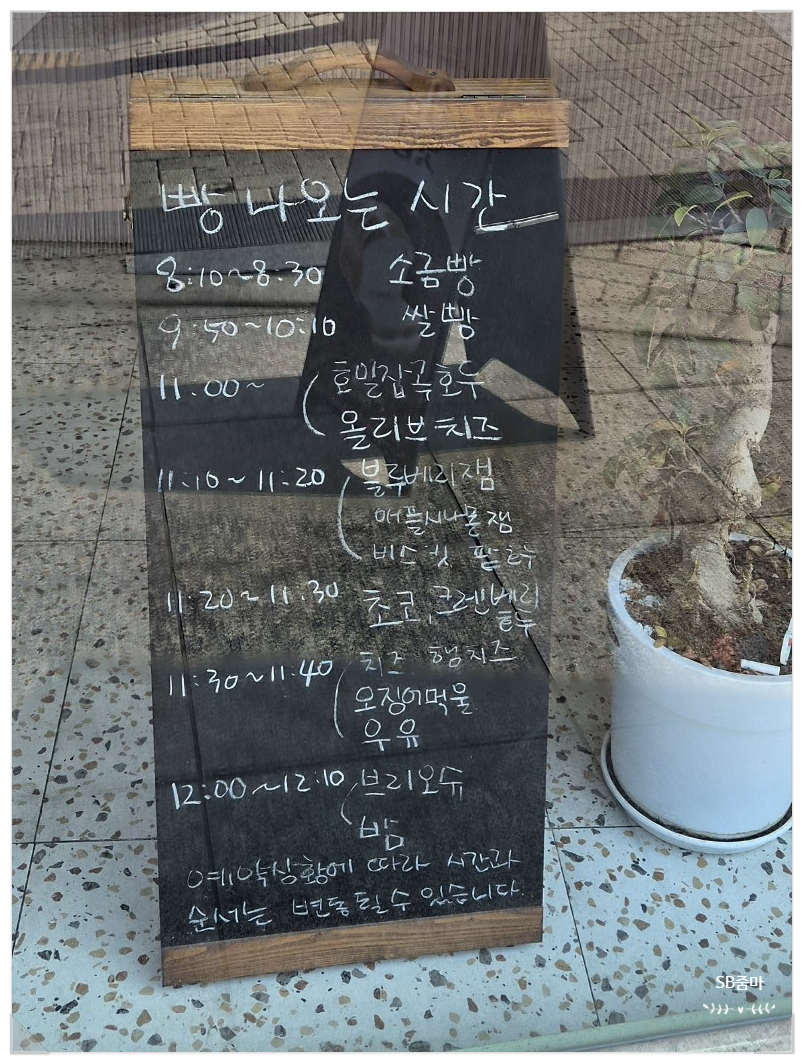 빵 나오는 시간
8:10~8:30 소금빵
9:50~10:10 쌀빵
11:00~ 호밀잡곡호두
올리브치즈
11:10~11:20 블루베리잼
애플시나몬잼
비스킷 팥호두
11:20~11:30 초코, 크렌베리
호두
11:30~11:40 치즈 햄치즈
오징어먹물
우유
12:00~12:10 브리오슈
밤
예약상황에 따라 시간과
순서는 변동될 수 있습니다.
SB줌마